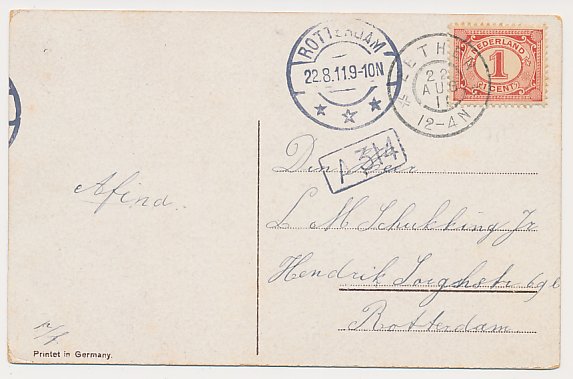 ROTTERDAM
22.8.11.9-10N
22
AUG
11
12-4N
NEDERLAND
1
CENT
A 314
Den Heer
L M Schukking Jr
Hendrik Sorghstr 6
Rotterdam.
Afind.
Printet in Germany.